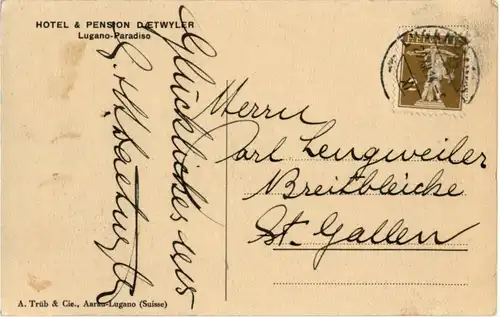 HOTEL & PENSION DÆTWYLER
Lugano-Paradiso
Glückliches 1915
Herrn
Carl Lengweiler
Breitbleiche
St. Gallen
A. Trüb & Cie., Aarau-Lugano (Suisse)